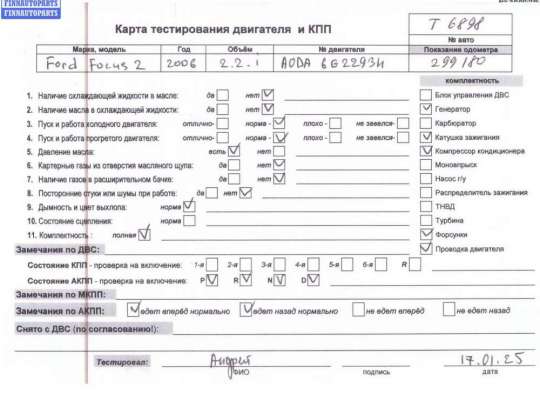 FINNAUTOPARTS
FINNAUTOPARTS
Карта тестирования двигателя и КПП
Т 6898
№ авто
Марка, модель Год Объём № двигателя Показание одометра
Ford Focus 2 2006 2.2.i AODA 6G22934 299180
комплектность
1. Наличие охлаждающей жидкости в масле: да нет Блок управления ДВС
2. Наличие масла в охлаждающей жидкости: да нет Генератор
3. Пуск и работа холодного двигателя: отлично- норма - плохо - не завелся- Карбюратор
4. Пуск и работа прогретого двигателя: отлично- норма - плохо - не завелся- Катушка зажигания
5. Давление масла: есть нет Компрессор кондиционера
6. Картерные газы из отверстия масляного щупа: да нет Моновпрыск
7. Наличие газов в расширительном бачке: да нет Насос г/у
8. Посторонние стуки или шумы при работе: да нет Распределитель зажигания
9. Дымность и цвет выхлопа: норма ТНВД
10. Состояние сцепления: норма Турбина
11. Комплектность : полная Форсунки
Замечания по ДВС: Проводка двигателя
Состояние КПП - проверка на включение: 1-я 2-я 3-я 4-я 5-я 6-я R
Состояние АКПП - проверка на включение: P R N D
Замечания по МКПП:
Замечания по АКПП: едет вперёд нормально едет назад нормально не едет вперёд не едет назад
Снято с ДВС (по согласованию!):
Тестировал: Андрей 17.01.25
ФИО подпись дата